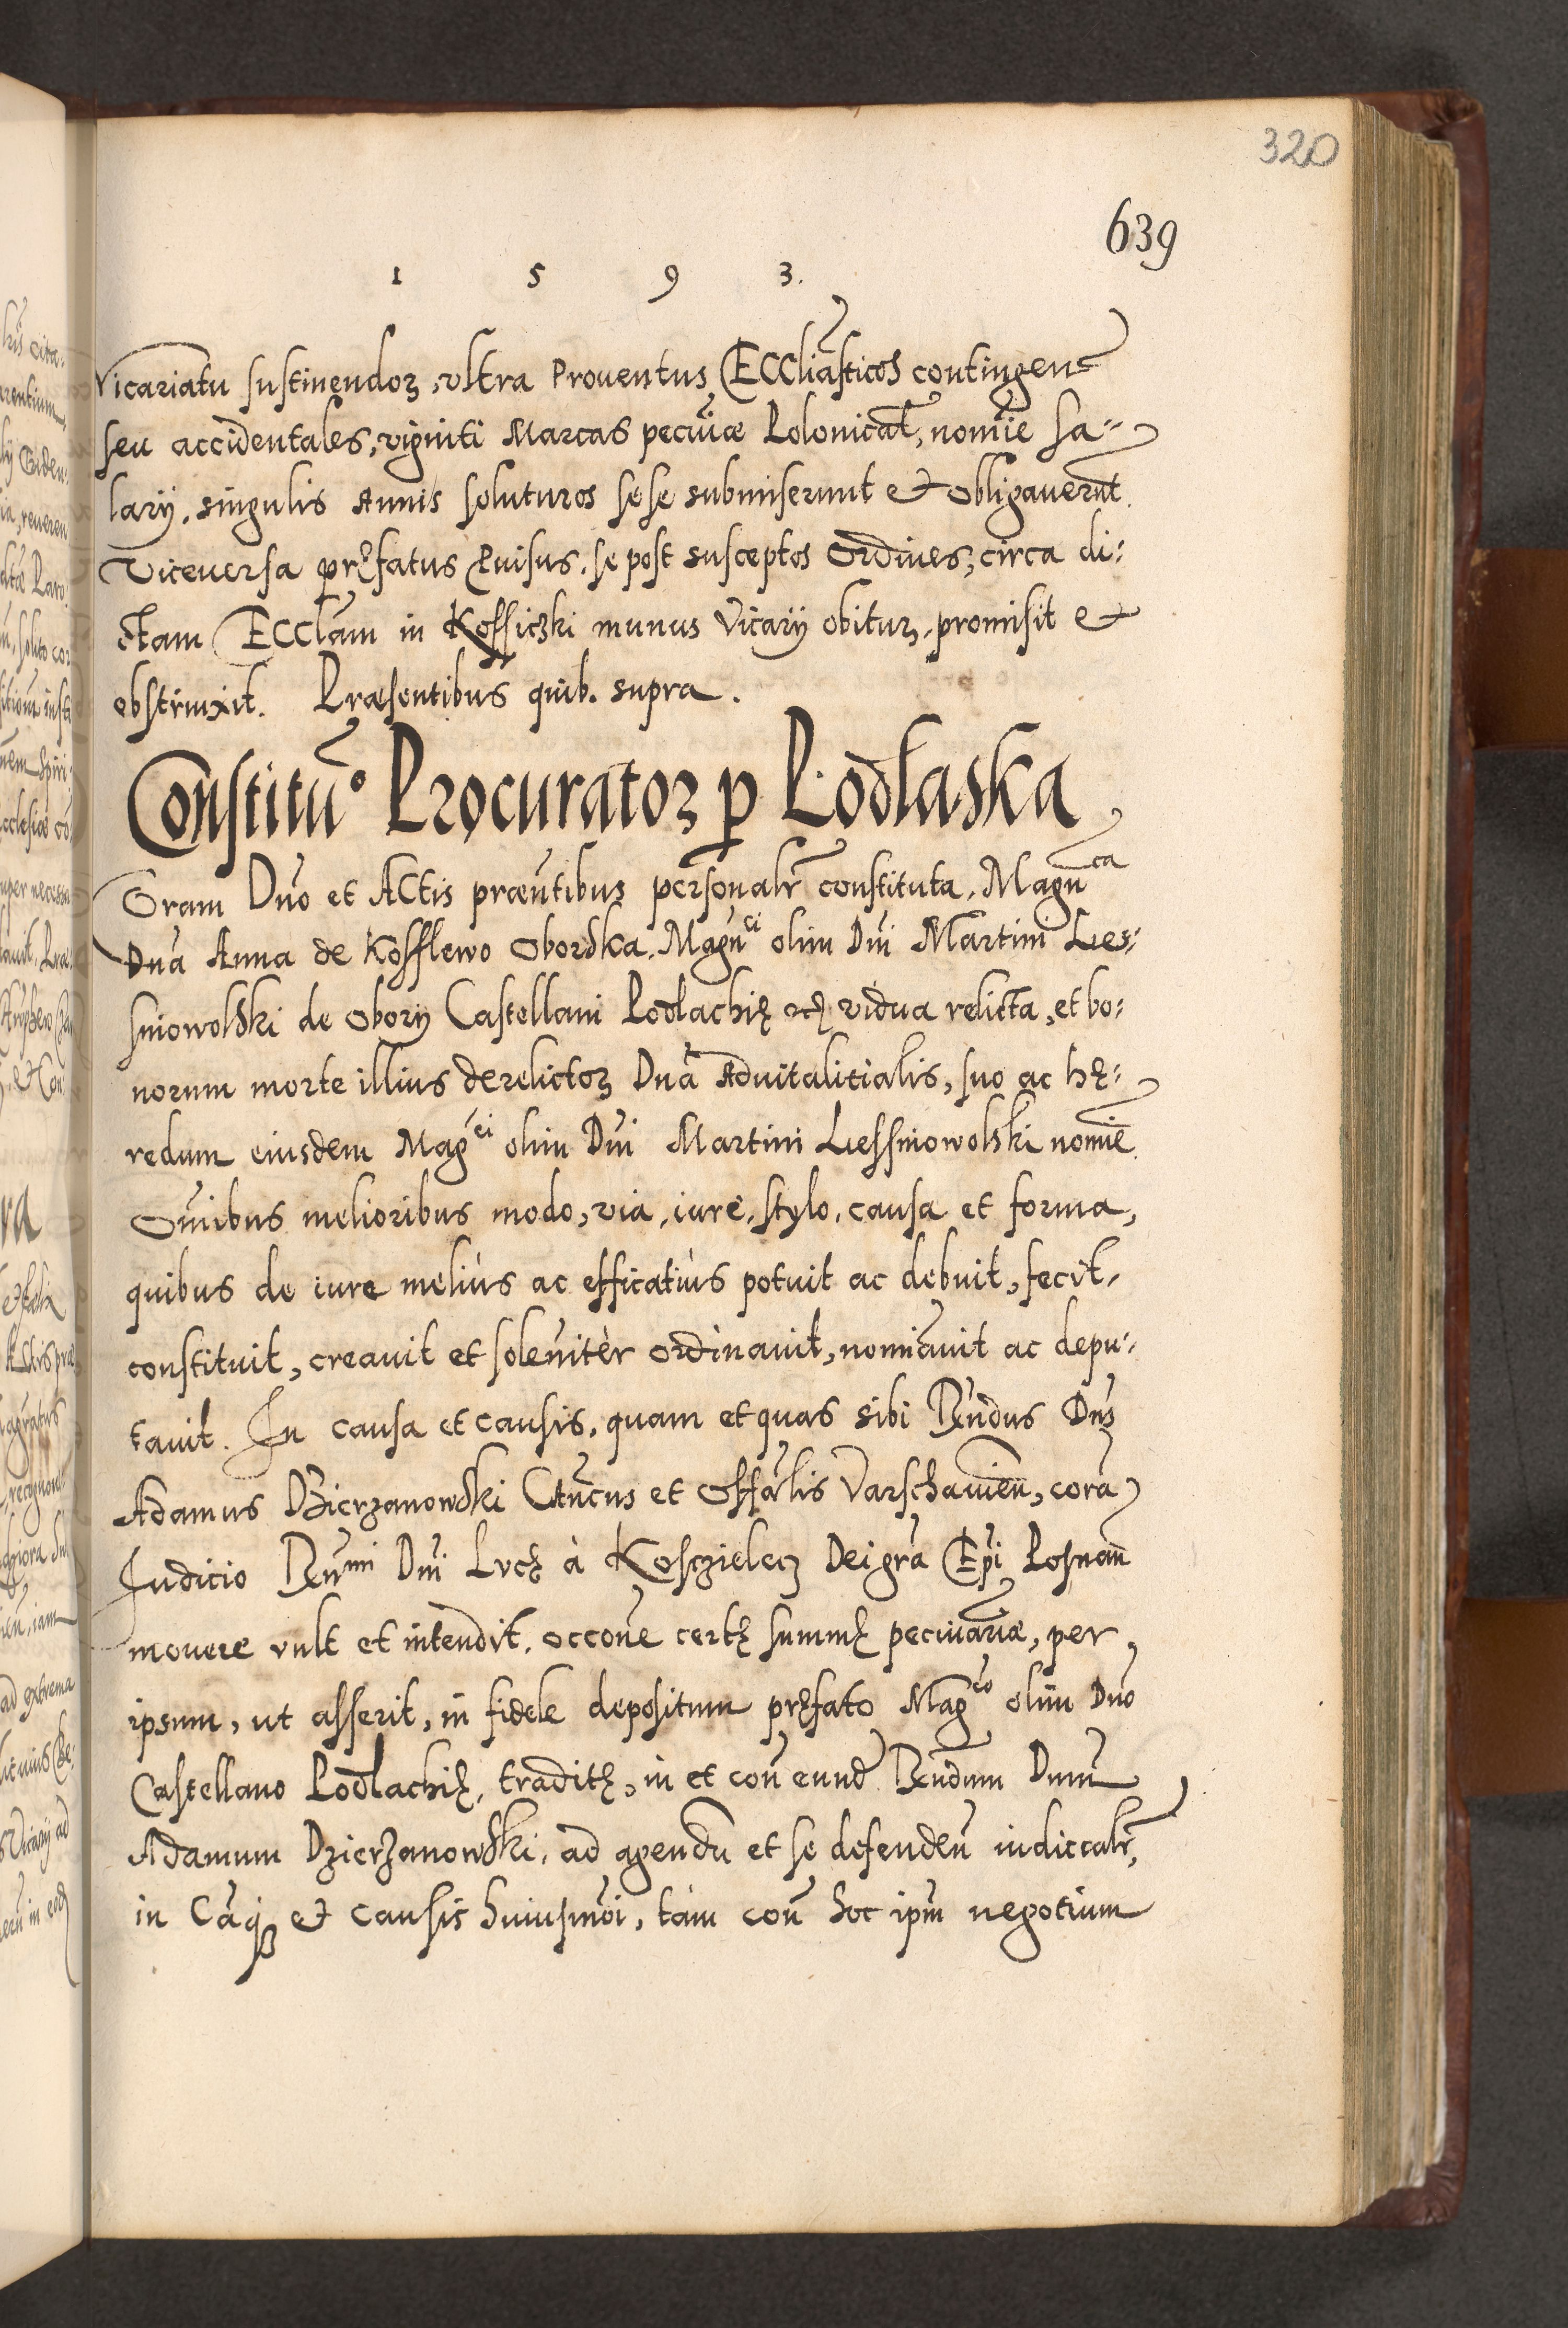 320
639
1 5 9 3.
Vicariatu sustinendoꝝ, vltra Prouentus Eccliãsticos contingeñ
seu accidentales, viginti Marcas pecuĩæ Polonical̃, nomĩe Sa⸗
larÿ, singulis Annis soluturos sese submiserunt et obligauerũt.
Viceuersa pręfatus Puisus, se post susceptos Ordines, circa di⸗
ctam Ecclãm in Kossiczki munus Vicarÿ obituꝝ, promisit et
obstrinxit. Præsentibus quib. supra.
Constitũo Procuratoꝝ ꝑ Podlaska
Coram Dño et Actis præñtibus personalr̃ constituta, Magñca
Dña Anna de Kosfflewo Oborska, Magñci olim Dñi Martini Les⸗
sniowolski de Obory Castellani Podlachię etc. vidua relicta, et bo⸗
norum morte illius derelictoꝝ Dña Aduitalitialis, suo ac hę⸗
redum eiusdem Magci olim Dñi Martini Liessniowolski nomĩe.
Om̃ibus melioribus modo, via, iure, stylo, causa et forma,
quibus de iure meliùs ac efficatiùs potuit ac debuit, fecit,
constituit, creauit et solem̃iter ordinauit, nomĩauit ac depu⸗
tauit. In causa et causis, quam et quas sibi Rñdus Dñs
Adamus Dzierzanowski Ctũcus et Offãlis Varschauieñ, corã
Judicio Rñmi Dñi Lucę à Kosczielecz Dei gr̃a Epĩ Posnañ
mouere vult et intendit, occõne certę summę pecuniãriæ, per
ipsum, ut asserit, in fidele depositum pręfato Magco olim Dño
Castellano Podlachię, traditę, in et coñ eund̃ Rñdum Dnum̃
Adamum Dzierzanowski, ad agendũ et se defendeñ iudiccalr̃,
in Cãqꝫ et causis huiusmõi, tàm coñ hoc ipm̃ negotium